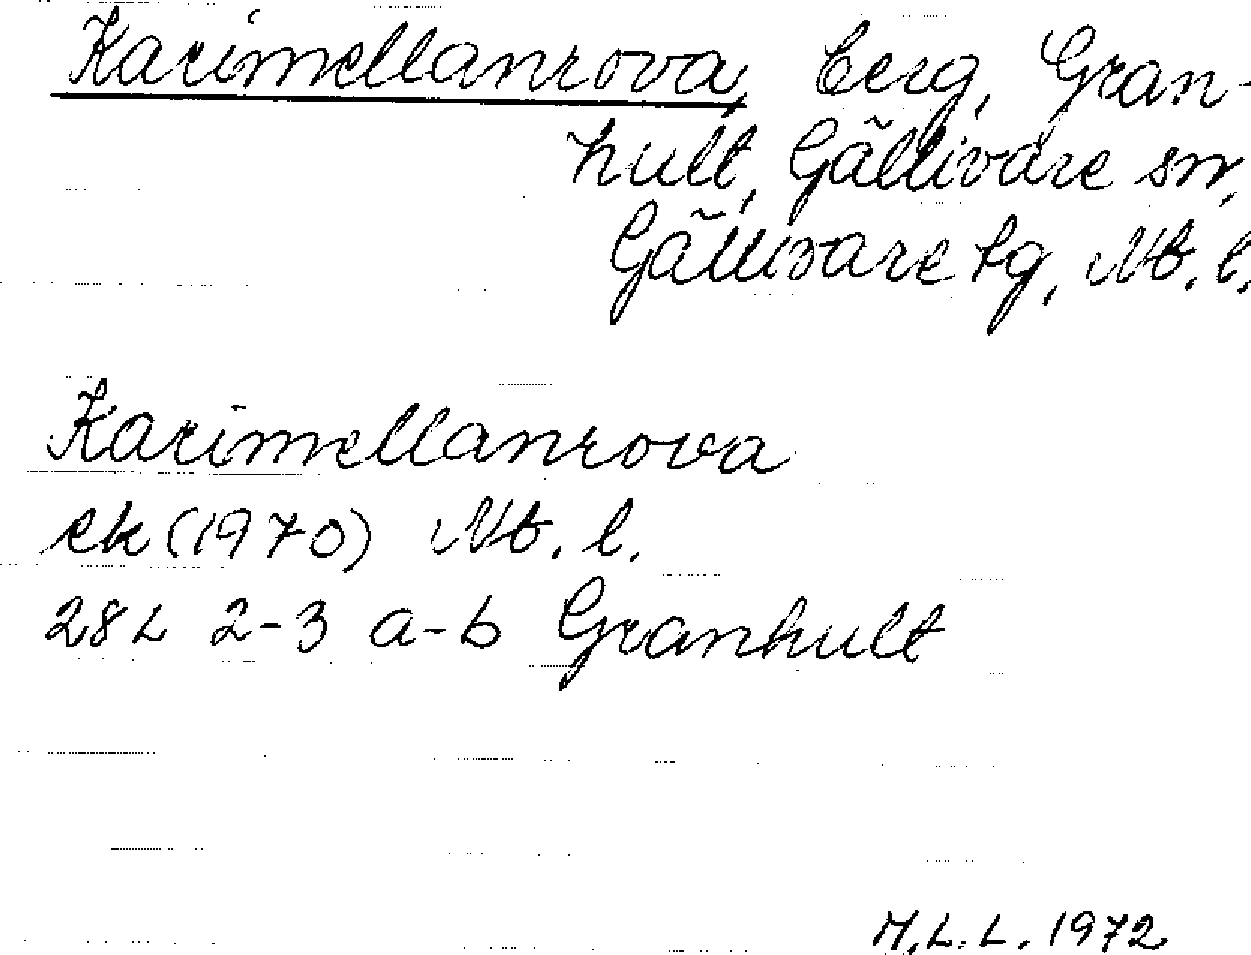 Karimellanrova, berg, Gran-
hult, Gällivare sn,
Gällivare tg, Nb. l.
Karimellanrova
ek (1970) Nb. l.
28L 2-3 a-b Granhult
M.L.L. 1972